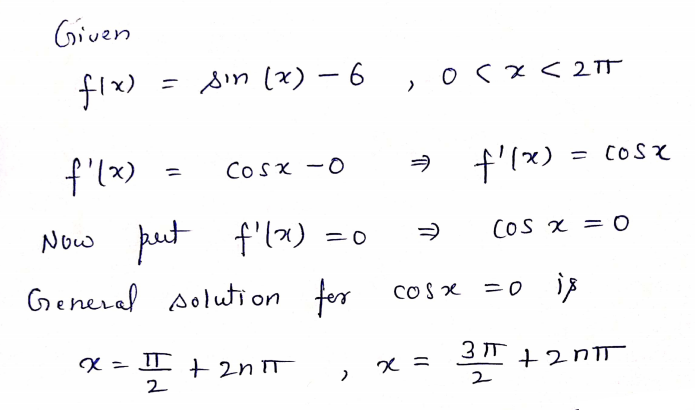 Given
f(x) = sin (x) - 6 , 0 < x < 2π
f'(x) = cosx - 0 ⇒ f'(x) = cosx
Now put f'(x) = 0 ⇒ cos x = 0
General solution for cosx = 0 is
x = π/2 + 2nπ , x = 3π/2 + 2nπ